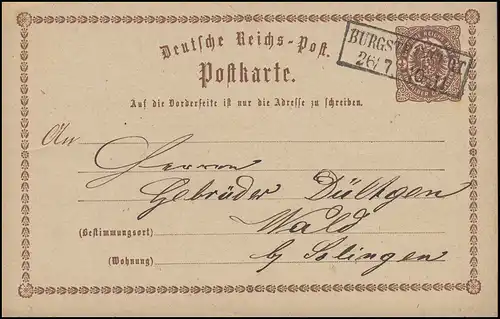 Deutsche Reichs-Post.
Postkarte.
Auf die Vorderseite ist nur die Adresse zu schreiben.
26/7
An
Herren
Gebrüder Dültgen
Wald
(Bestimmungsort)
by Solingen
(Wohnung)